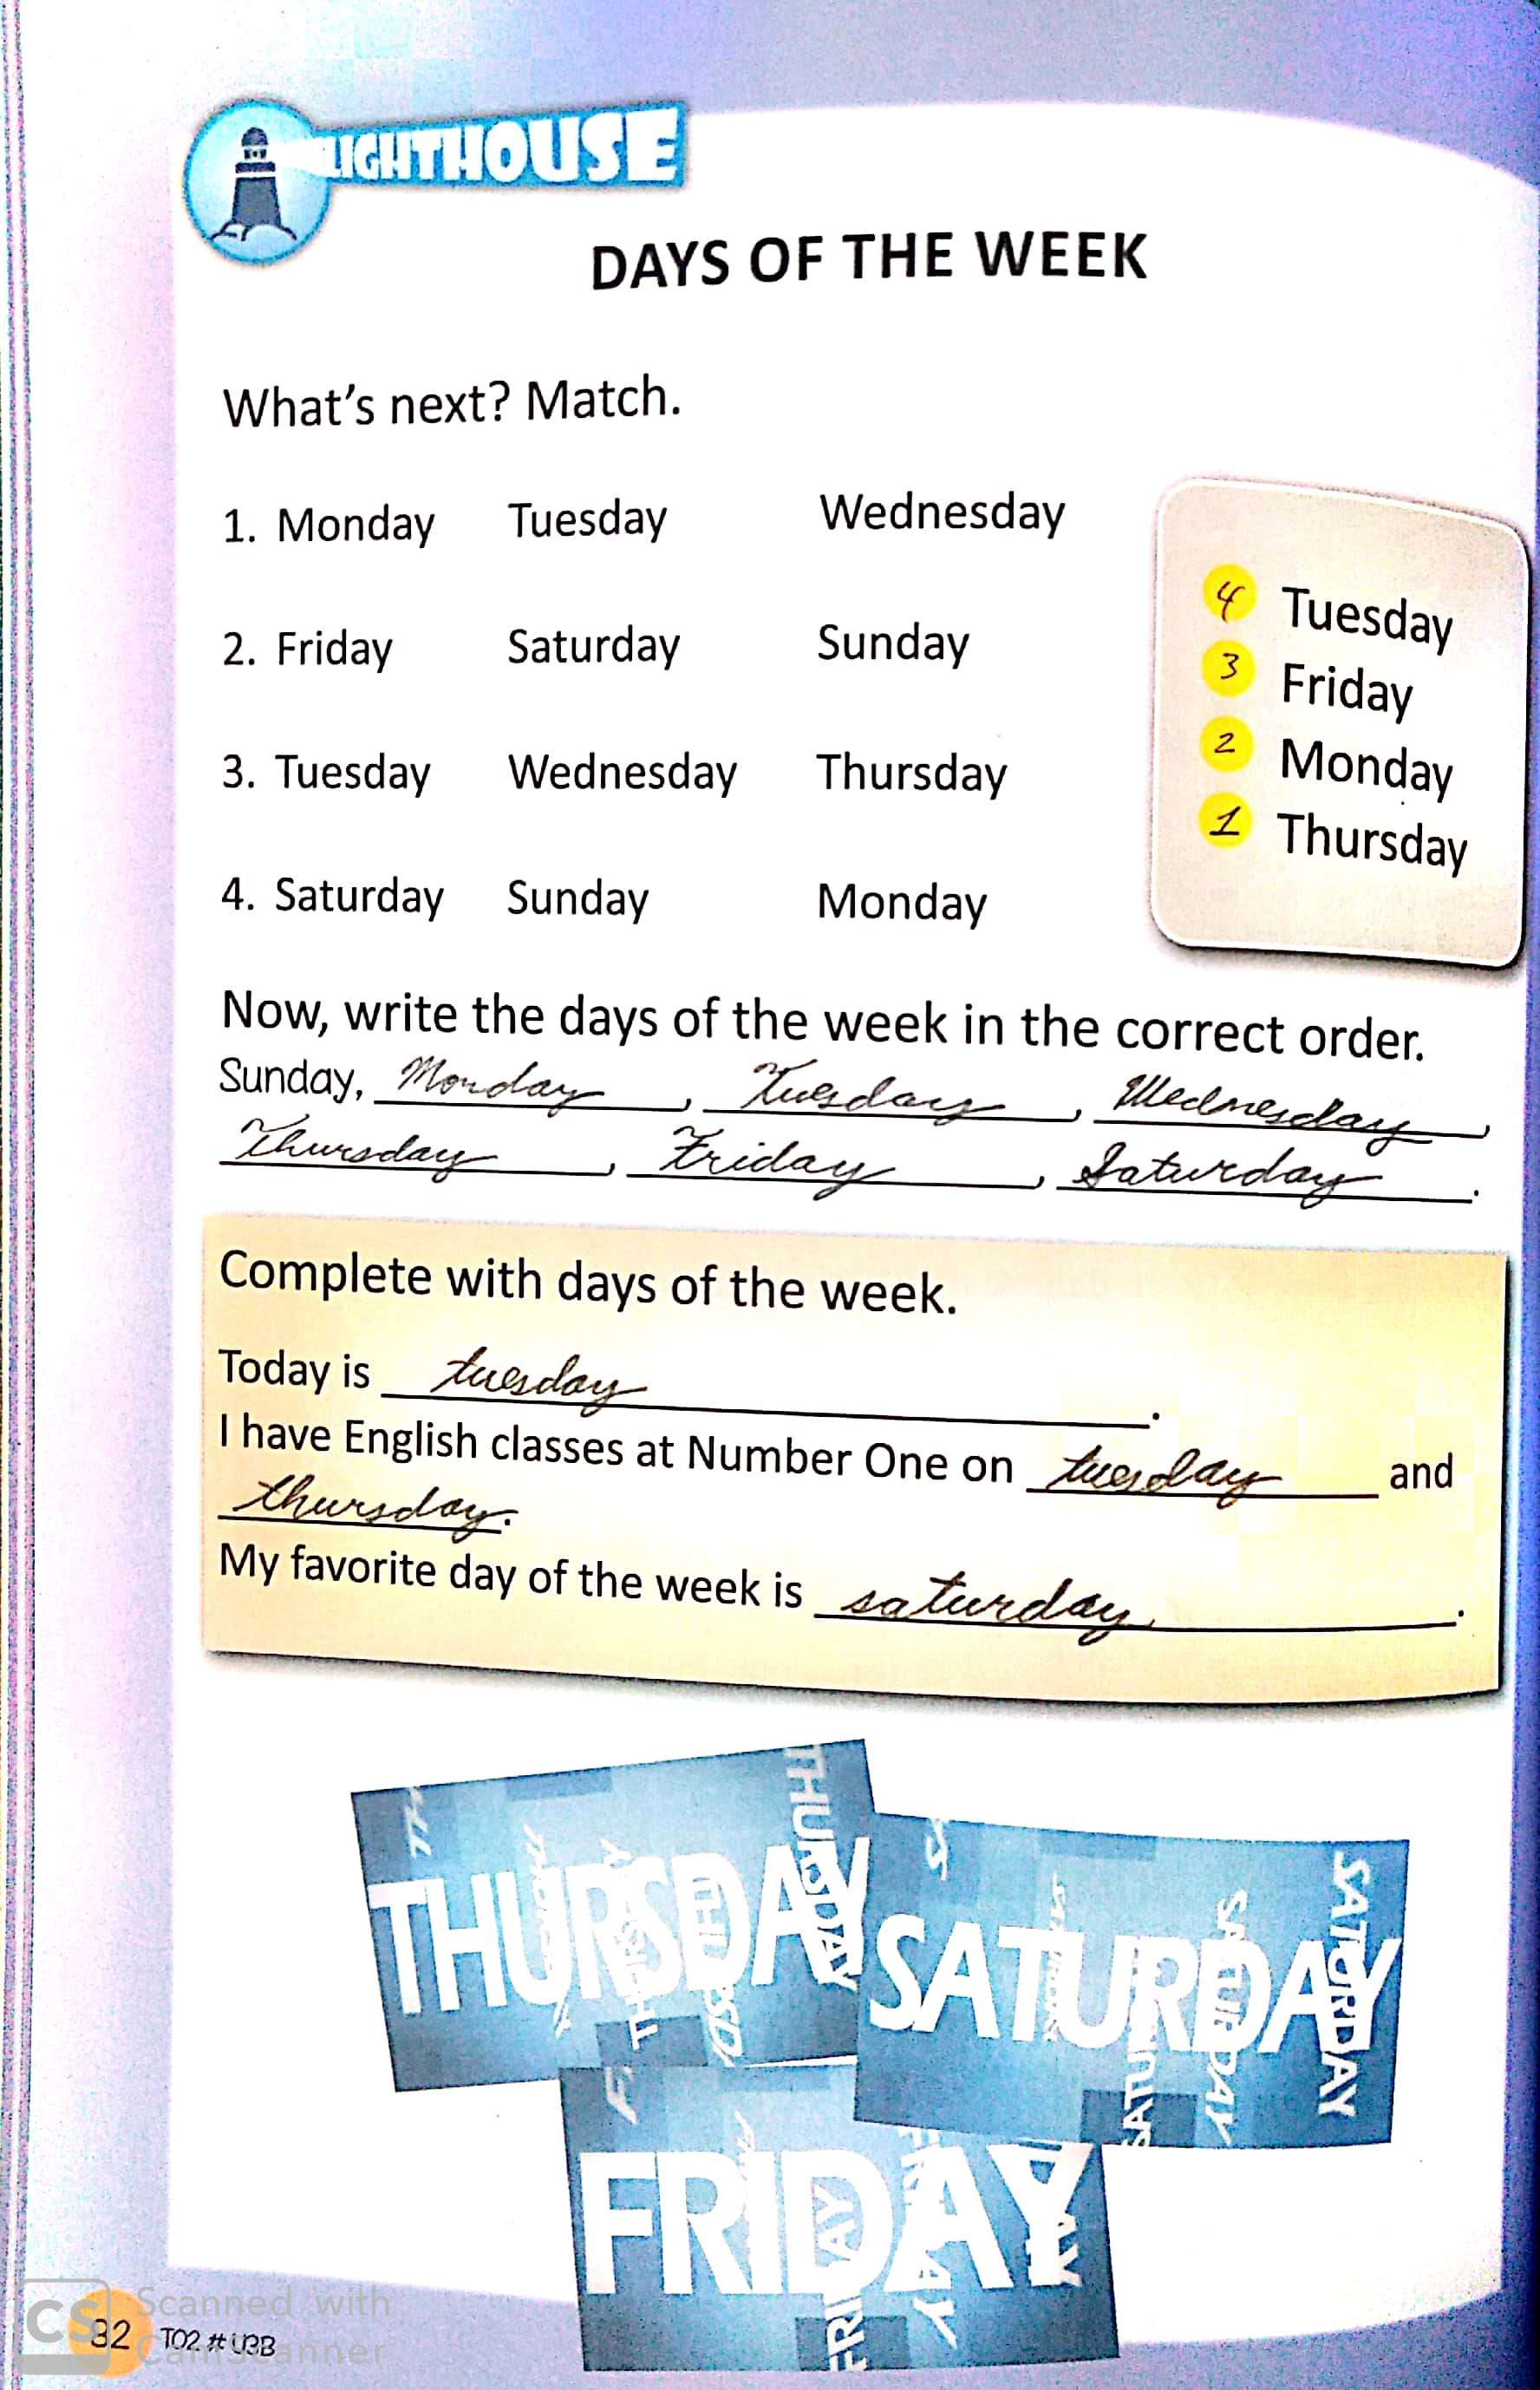 LIGHTHOUSE
DAYS OF THE WEEK
What's next? Match.
1. Monday Tuesday Wednesday
2. Friday Saturday Sunday
3. Tuesday Wednesday Thursday
4. Saturday Sunday Monday
4 Tuesday
3 Friday
2 Monday
1 Thursday
Now, write the days of the week in the correct order.
Sunday, Monday, Tuesday, Wednesday,
Thursday, Friday, Saturday.
Complete with days of the week.
Today is tuesday.
I have English classes at Number One on tuesday and
thursday.
My favorite day of the week is saturday.
THURSDAY
THURSDAY
SATURDAY
SATURDAY
FRIDAY
CS Scanned with
CamScanner
32 T02 # U3B